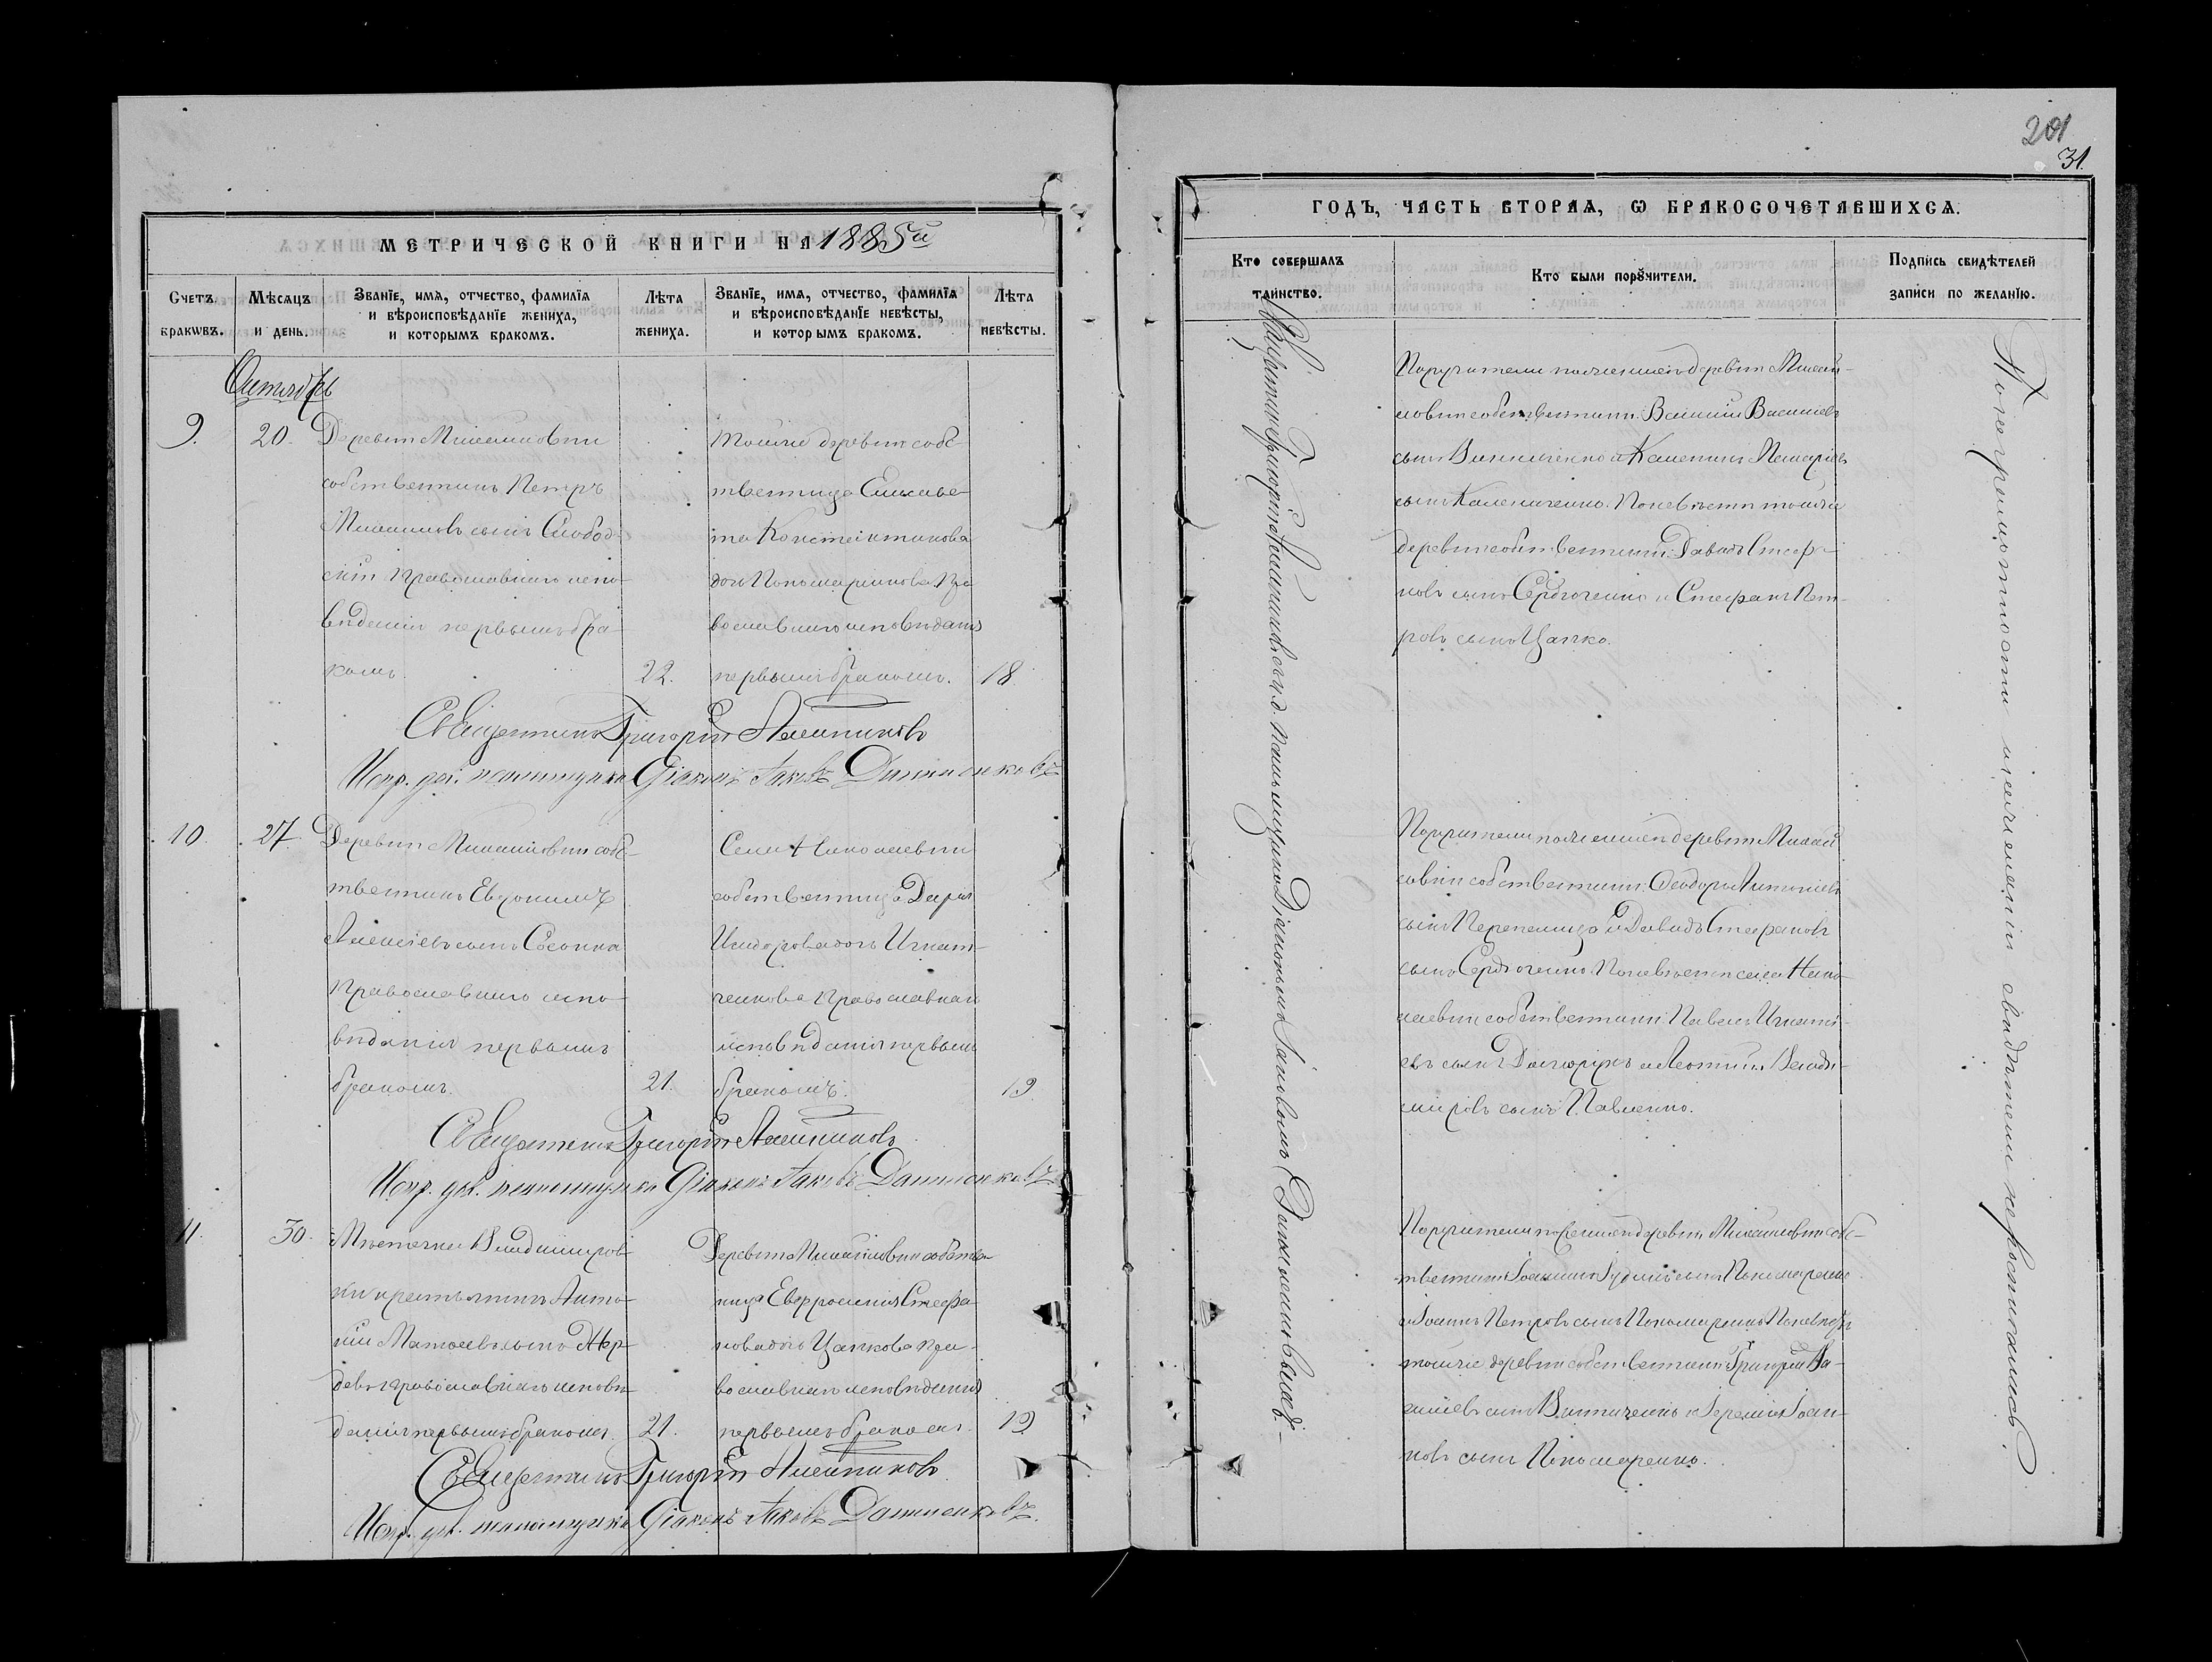 МЕТРИЧЕСКОЙ КНИГИ НА 1885й
Счетъ браковъ.
Мѣсяцъ и день.
Званіе, имя, отчество, фамилія и вѣроисповѣданіе жениха, и которымъ бракомъ.
Лѣта жениха.
Званіе, имя, отчество, фамилія и вѣроисповѣданіе невѣсты, и которымъ бракомъ.
Лѣта невѣсты.
Октябрь
9.
20.
Деревни Михайловки
собственникъ Петръ
сынъ Слобод-
скій Православнаго испо-
вѣданія первымъ бра-
комъ
22.
тойже деревни собс-
твенница Елисаве-
та Константинова
дочь Пономаренкова Пра-
вославнаго исповѣданія
первымъ бракомъ.
18
Священникъ Григорій
Испр. дол. псаломщика Діаконъ Іаковъ
10.
27.
Деревни Михайловки собс-
твенникъ Евдокимъ
сынъ
Православнаго испо-
вѣданія первымъ
бракомъ.
21.
Села Николаевки
собственница Дарія
Исидорова дочь Игнат-
ченкова Православнаго
исповѣданія первымъ
бракомъ.
19.
Священникъ Григорій
Испр. дол. псаломщика Діаконъ Іаковъ
11.
30.
Мѣстечка Владимиров-
ки крестьянинъ Анто-
ній сынъ
Православнаго исповѣ-
данія первымъ бракомъ.
21.
Деревни Михайловки собствен-
ница Евфросинія Стефа-
нова дочь Цапкова пра-
вославнаго исповѣданія
первымъ бракомъ.
19
Священникъ Григорій
Испр. дол. псаломщика Діаконъ Іаковъ
201
31.
ГОДЪ, ЧАСТЬ ВТОРАЯ, Ѡ БРАКОСОЧЕТАВШИХСЯ.
Кто совершалъ таинство.
Кто были поручители.
Подпись свидѣтелей записи по желанію.
Священникъ Григорій съ и. д. псаломщика Діакономъ Іаковомъ
Поручители по женихѣ деревни Михай-
ловки собственники: Василій Васильевъ
сынъ и
сынъ Калениченко. По невѣстѣ тойже
деревни собственники: Давидъ Стефа-
новъ сынъ Сердюченко и Стефанъ Пет-
ровъ сынъ Цапко.
Поручители по женихѣ деревни Михай
ловки собственники: Ѳеодоръ Антоніевъ
сынъ Перепелица и Давидъ Стефановъ
сынъ Сердюченко. По невѣстѣ села Нико-
лаевки собственники: Павелъ Игнаті-
евъ сынъ и Леонтій Влади-
міровъ сынъ Павленко.
Поручители по женихѣ деревни Михайловки собс-
твенники: сынъ Пономаренко
и Іоаннъ Петровъ сынъ Пономаренко По невѣстѣ
тойже деревни собственники: Григорій Ва-
сильевъ сынъ Винниченко и Іеремія Іоан-
новъ сынъ Пономаренко.
По неграмотности и нежеланію свидѣтели не росписались.